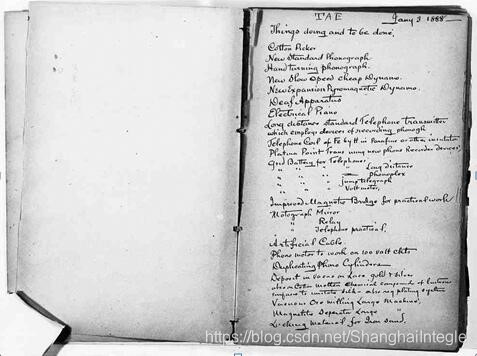 TAE Jany 3 1888
Things doing and to be done,
Cotton Picker
New Standard Phonograph
Hand turning phonograph.
New Slow Speed cheap Dynamo.
New Expansion Pyromagnetic Dynamo.
Deaf Apparatus
Electrical Piano
Long distance standard Telephone Transmitter
which employs devices of recording phonogh
Telephone Coil of Fe by tt in Parafine or other insulator
Platina Point Trans using new phono Recorder devices
Grd Battery for Telephones
" " " Long distance
" " " Phonoplex
" " " Jump telegraph
" " " Voltmeter,
Improved Magneto Bridge for practical work
Motograph Mirror
" Relay
" Telephone practical,
Artificial Cable
Phono motor to work on 100 volt ckts
Duplicating Phono Cylinders
Deposit in vacuo on Lace gold & silver
also on cotton molten chemical compound of lustrous
surface to imitate silk - also reg plating system
Vacuous Ore milling Large Machine
Magnetic Separator Large "
Locking material for Iron sand
https://blog.csdn.net/ShanghaiIntegle